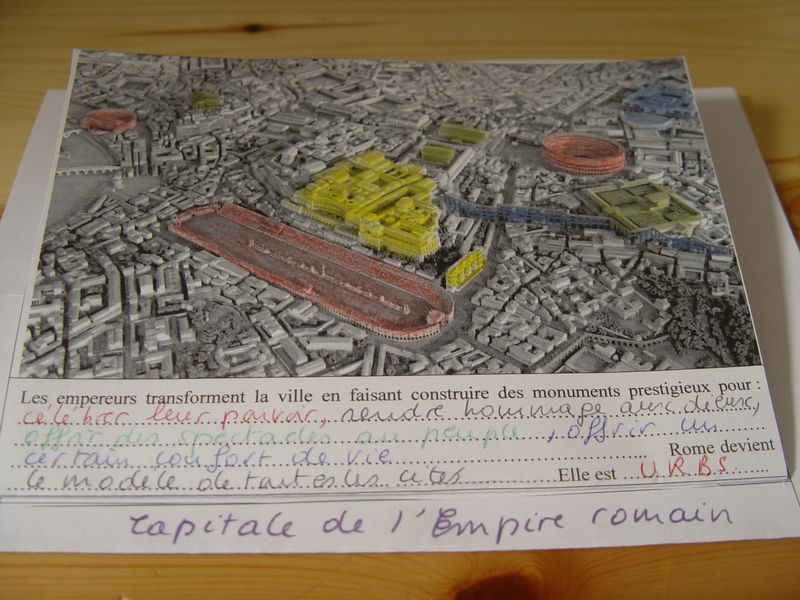 Les empereurs transforment la ville en faisant construire des monuments prestigieux pour :
célébrer leur pouvoir, rendre hommage aux dieux,
offrir des spectacles au peuple, offrir un
certain confort de vie Rome devient
le modèle de toutes les cités Elle est U.R.B.S.
capitale de l'Empire romain